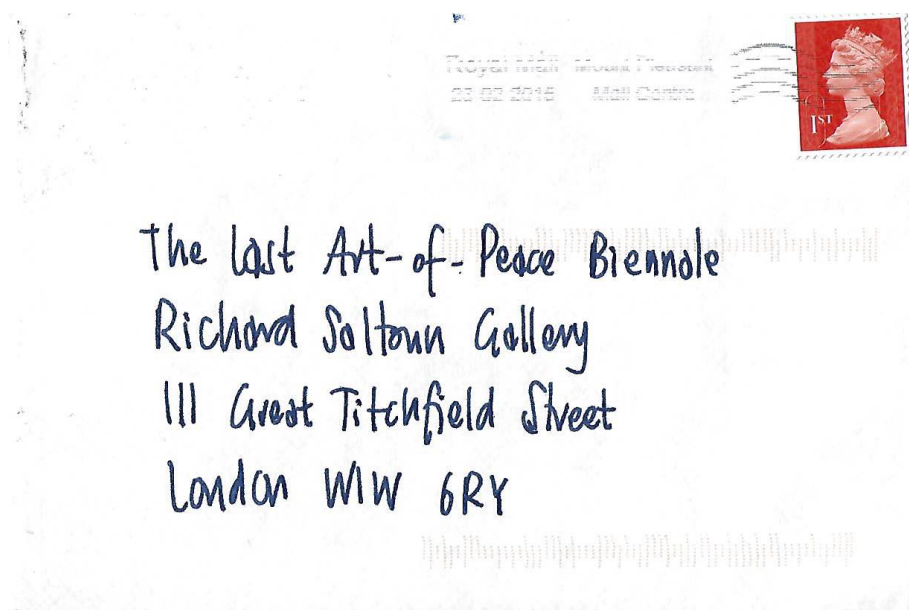 Royal Mail Mount Pleasant
Mail Centre
1ST
The Last Art-of-Peace Biennale
Richard Saltoun Gallery
111 Great Titchfield Street
London W1W 6RY